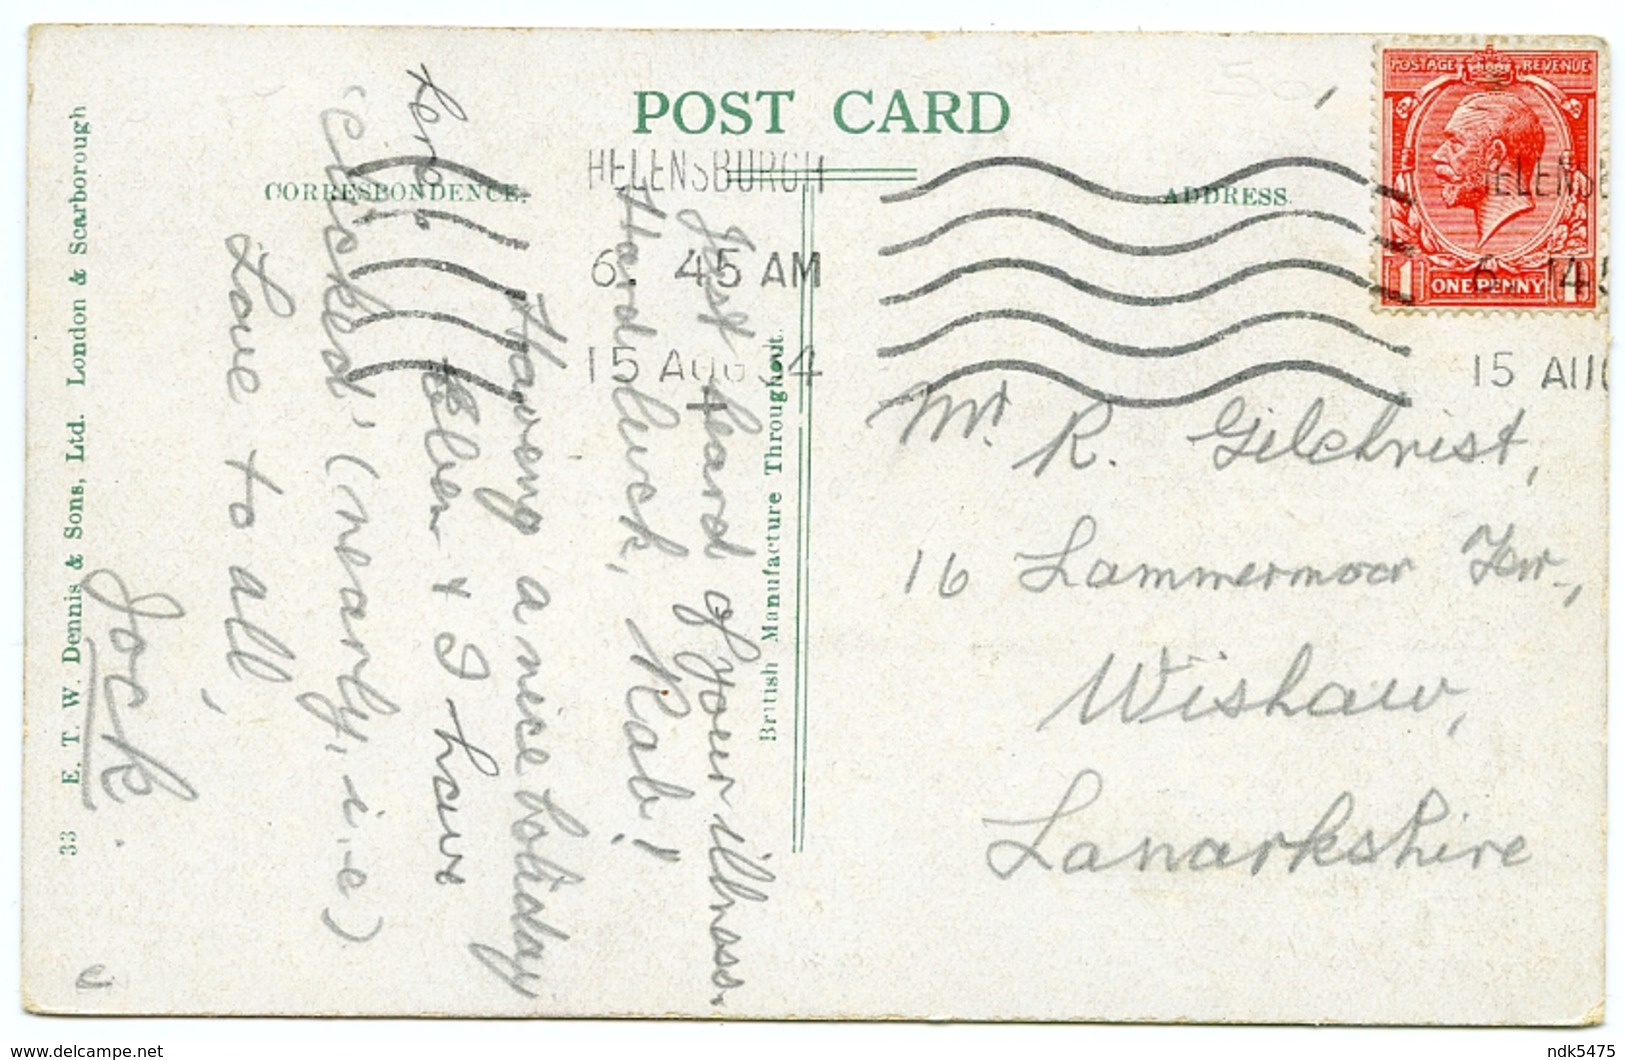 POST CARD
CORRESPONDENCE.
ADDRESS.
HELENSBURGH
6. 45 AM
15 AUG 34
POSTAGE REVENUE
1 ONE PENNY 1
HELENSB
6. 45
15 AUG
Just heard of your illness.
Hard luck, Rab!
Having a nice holiday
here. Ellen & I have
'clicked' (nearly, i.e)
Love to all,
Jock.
Mr. R. Gilchrist,
16 Lammermoor Terr.,
Wishaw,
Lanarkshire
British Manufacture Throughout.
33 E. T. W. Dennis & Sons, Ltd. London & Scarborough
ndk5475
www.delcampe.net